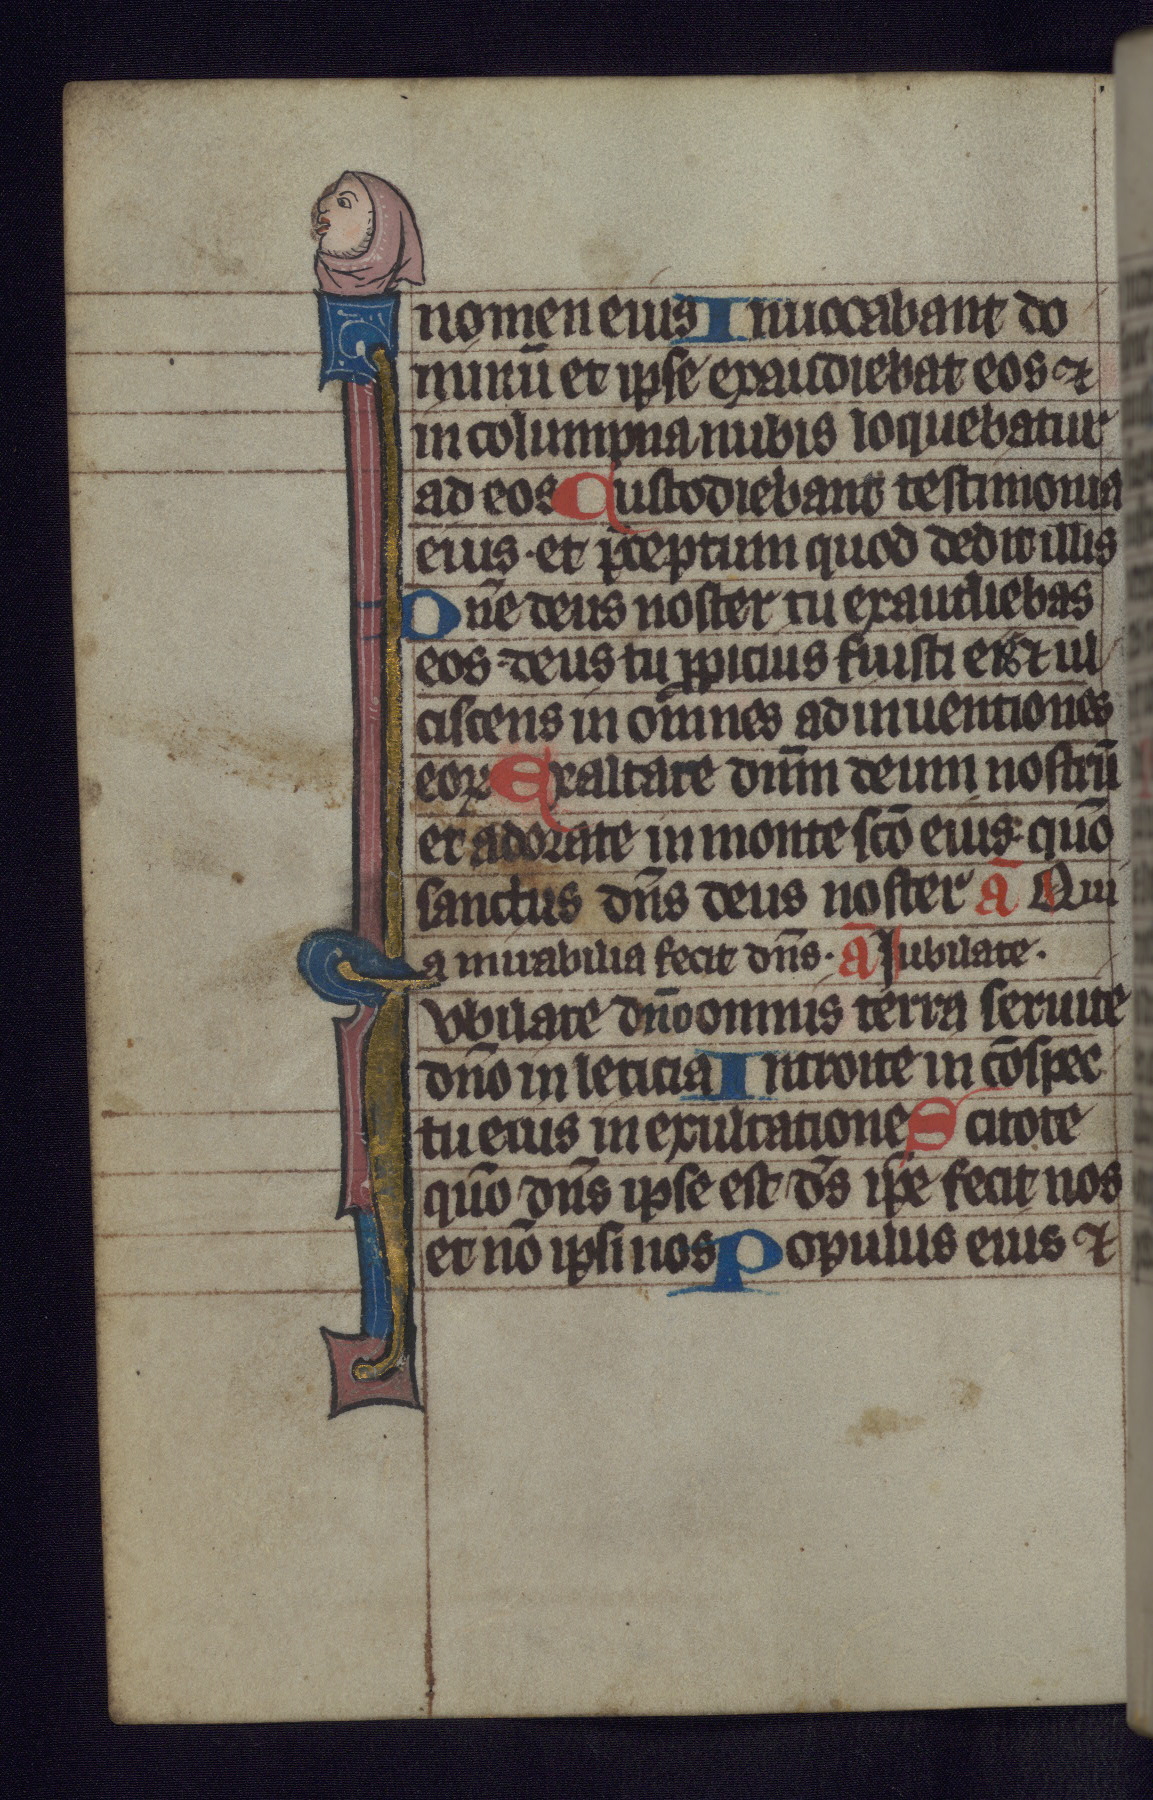 nomen eius Inuocabant do
minū et ipse exaudiebat eos ⁊
in columpna nubis loquebatur
ad eos Custodiebant testimonia
eius · et p̄ceptum quod dedit illis
Dn̄e deus noster tu exaudiebas
eos · deus tu ꝓpicius fuisti eis ⁊ ul
ciscens in om̄nes adinuentiones
eoꝝ Exaltate dn̄m deum nostrū
et adorate in monte sc̄o eius · quō
sanctus dn̄s deus noster ā Qui
a mirabilia fecit dn̄s · ā Jubilate ·
vbilate dn̄o omnis terra seruite
dn̄o in leticia Introite in cōspec
tu eius in exultatione Scitote
quō dn̄s ipse est d̄s ip̄e fecit nos
et nō ipsi nos Populus eius ⁊